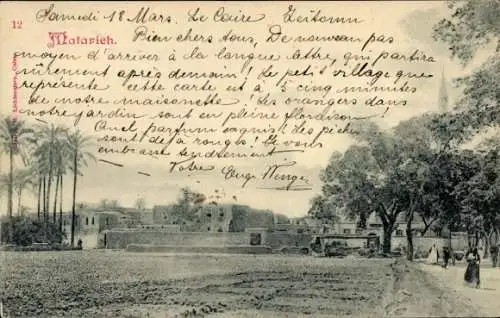 12
Matarieh.
Samedi 18 Mars. Le Caire Zeitoun
Bien chers tous, De nouveau pas
moyen d'arriver à la longue lettre, qui partira
sûrement après demain! Le petit village que
représente cette carte est à 5 cinq minutes
de notre maisonette! Les orangers dans
notre jardin sont en pleine floraison
Quel parfum exquis! les pêchers
sont da rouges! Je vous
embrasse tendrement
Votre